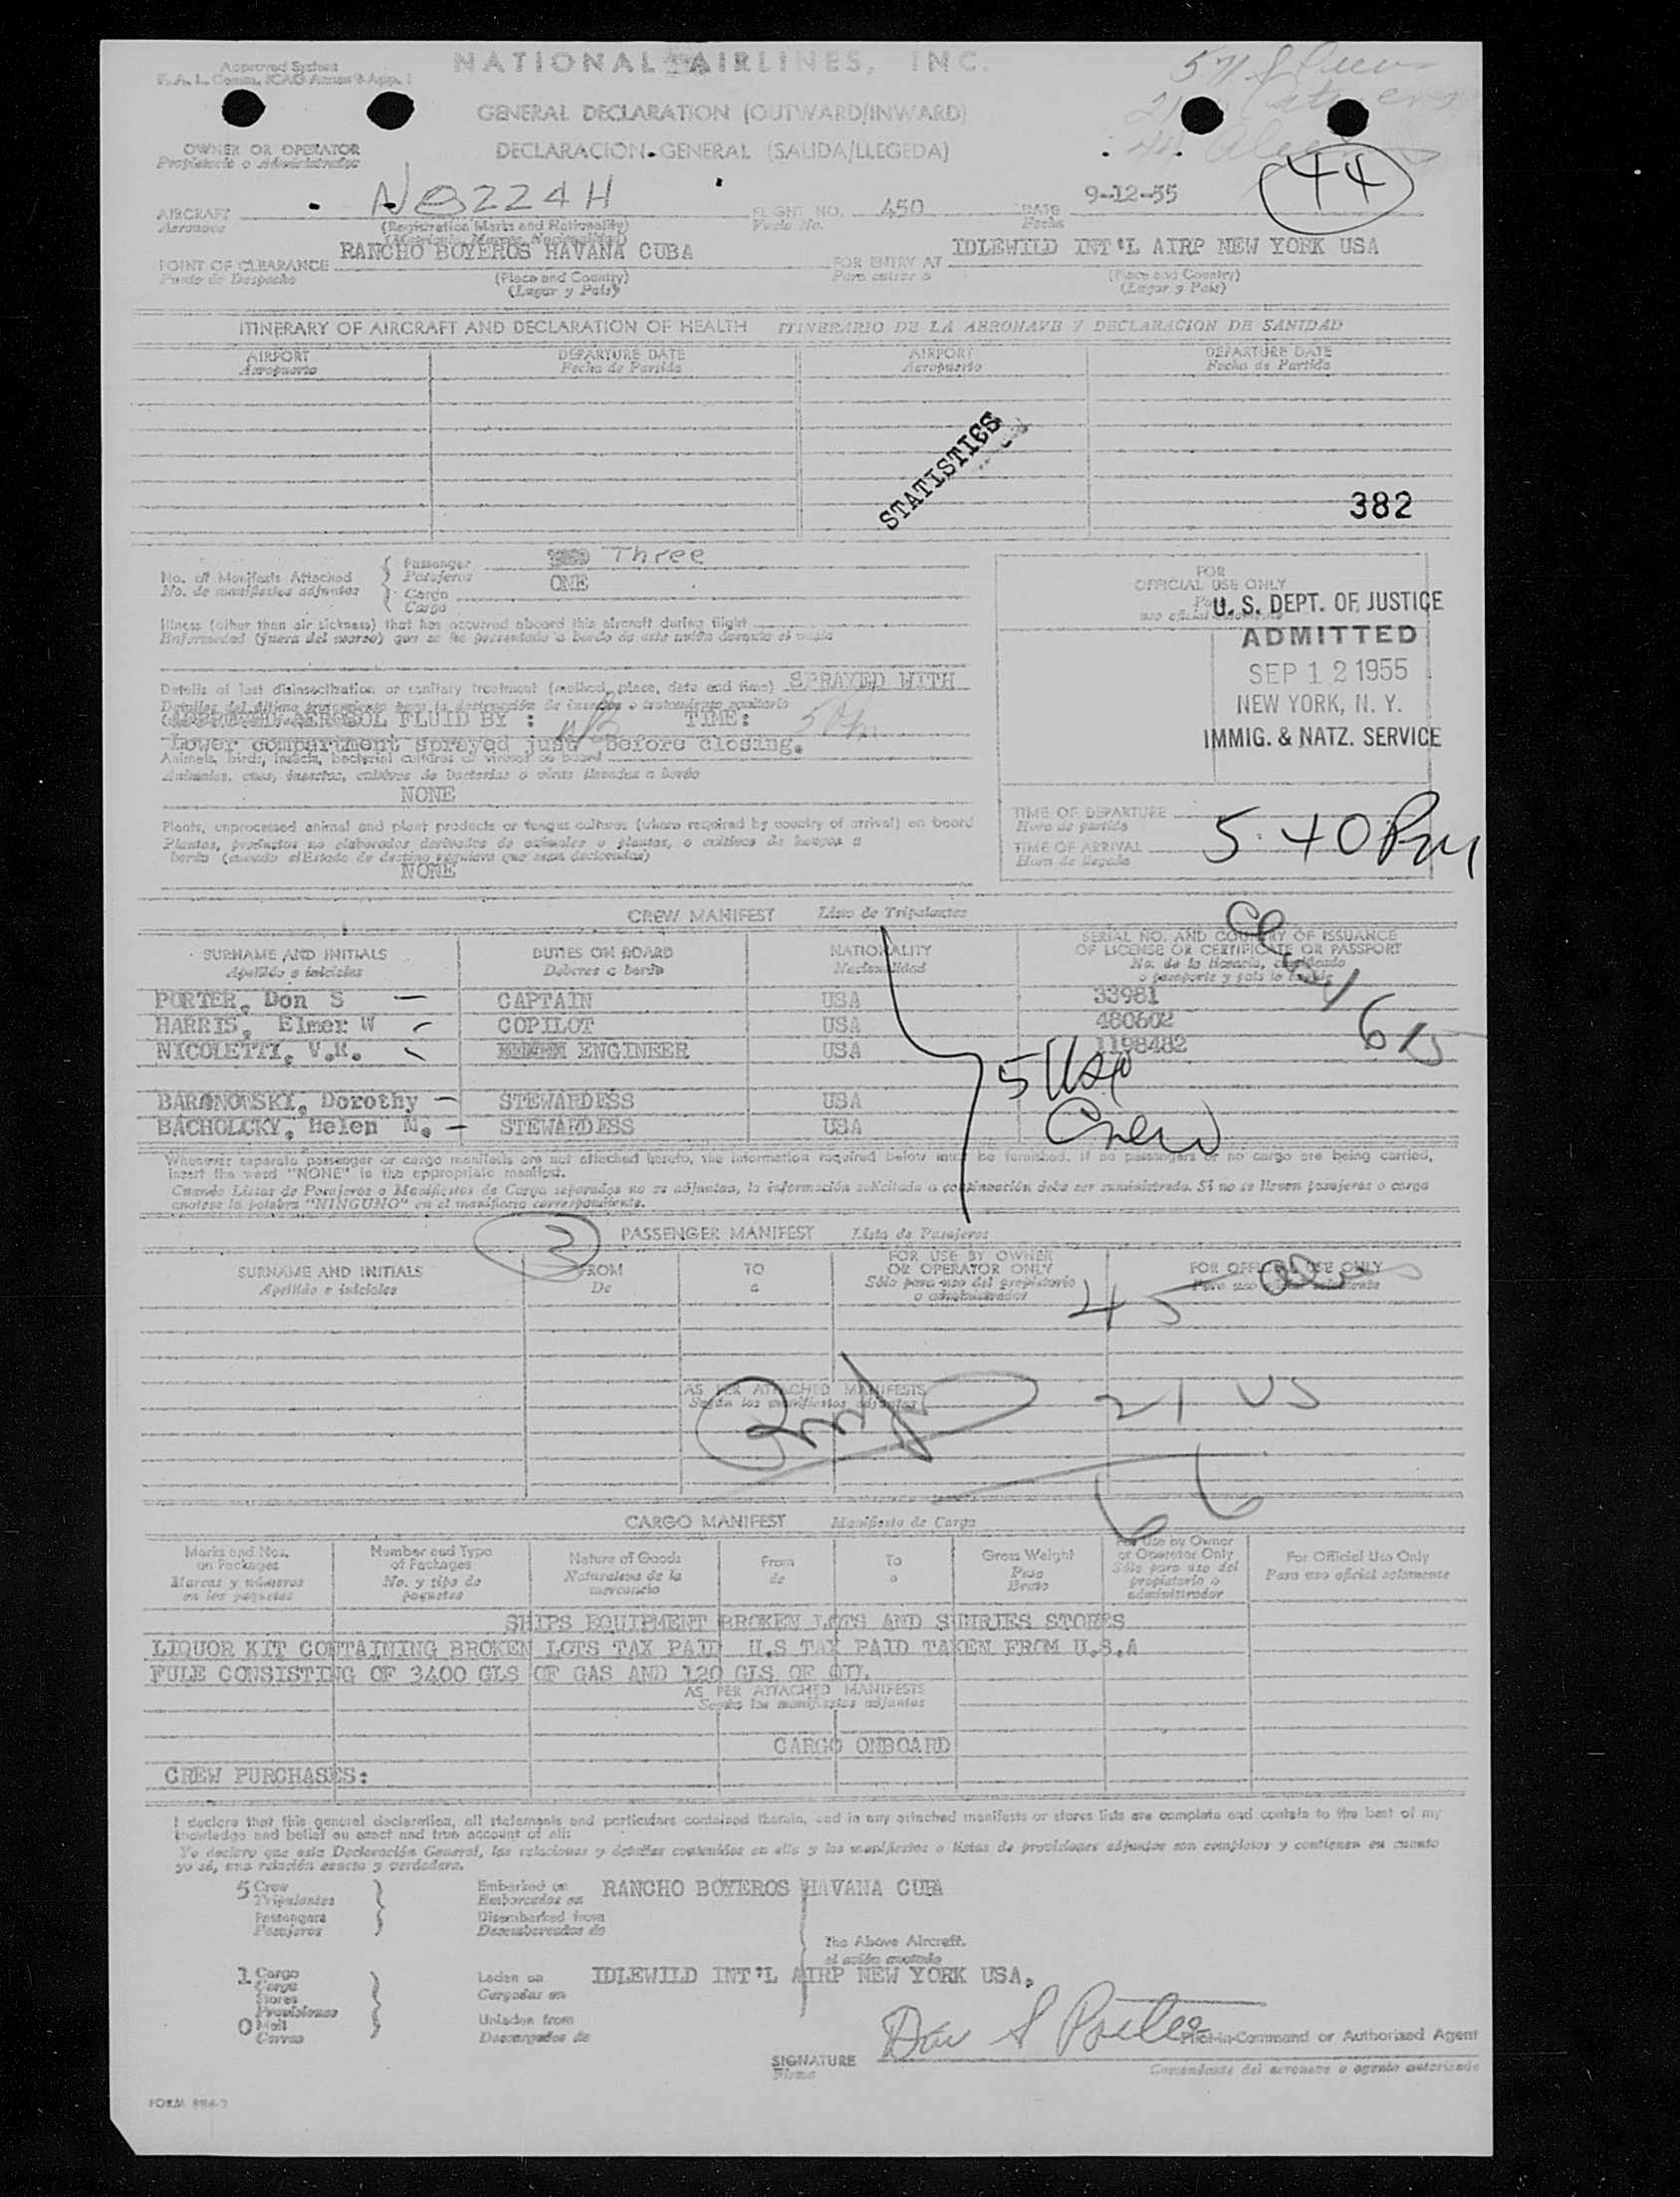 Approved System
F. A. L. Comm. ICAO Annex 9 App. 1
NATIONAL AIRLINES, INC.
GENERAL DECLARATION (OUTWARD/INWARD)
DECLARACION GENERAL (SALIDA/LLEGEDA)
OWNER OR OPERATOR
Propietario o Administrador
44
AIRCRAFT N8224H FLIGHT NO. 450 DATE 9-12-55
Aeronave (Registration Marks and Nationality) Vuelo No. Fecha
POINT OF CLEARANCE RANCHO BOYEROS HAVANA CUBA FOR ENTRY AT IDLEWILD INT'L AIRP NEW YORK USA
Punto de Despacho (Place and Country) Para entrar a (Place and Country)
(Lugar y Pais) (Lugar y Pais)
ITINERARY OF AIRCRAFT AND DECLARATION OF HEALTH ITINERARIO DE LA AERONAVE Y DECLARACION DE SANIDAD
AIRPORT DEPARTURE DATE AIRPORT DEPARTURE DATE
Aeropuerto Fecha de Partida Aeropuerto Fecha de Partida
STATISTICS
382
No. of Manifests Attached Passenger Three
No. de manifiestos adjuntos Pasajeros
Cargo ONE
Carga
FOR
OFFICIAL USE ONLY
U. S. DEPT. OF JUSTICE
ADMITTED
SEP 12 1955
NEW YORK, N. Y.
IMMIG. & NATZ. SERVICE
Illness (other than air sickness) that has occurred aboard this aircraft during flight
Enfermedad (fuera del mareo) que se ha presentado a bordo de este avión durante el vuelo
Details of last disinsectization or sanitary treatment (method, place, date and time) SPRAYED WITH
APPROVED AEROSOL FLUID BY : TIME:
Lower compartment sprayed just before closing.
Animals, birds, insects, bacterial cultures or viruses on board
Animales, aves, insectos, cultivos de bacterias o virus llevados a bordo
NONE
Plants, unprocessed animal and plant products or fungus cultures (where required by country of arrival) on board
Plantas, productos no elaborados derivados de animales o plantas, o cultivos de hongos a
bordo (cuando el Estado de destino requiera que sean declarados)
NONE
TIME OF DEPARTURE
Hora de partida
TIME OF ARRIVAL 5:40 PM
Hora de llegada
CREW MANIFEST Lista de Tripulantes
SURNAME AND INITIALS DUTIES ON BOARD NATIONALITY SERIAL NO. AND COUNTRY OF ISSUANCE
OF LICENSE OR CERTIFICATE OR PASSPORT
Apellido e iniciales Deberes a bordo Nacionalidad No. de la licencia, certificado
o pasaporte y pais
PORTER, Don S CAPTAIN USA 33981
HARRIS, Elmer W COPILOT USA 480602
NICOLETTI, V.R. ENGINEER USA 1198482
BARONOWSKI, Dorothy STEWARDESS USA
BACHOLCKY, Helen M. STEWARDESS USA
5 USA
Crew
Whenever separate passenger or cargo manifests are not attached hereto, the information required below must be furnished. If no passengers or no cargo are being carried,
insert the word "NONE" in the appropriate manifest.
Cuando Listas de Pasajeros o Manifiestos de Carga separados no se adjuntan, la información solicitada a continuación debe ser suministrada. Si no se llevan pasajeros o carga
anotese la palabra "NINGUNO" en el manifiesto correspondiente.
3 PASSENGER MANIFEST Lista de Pasajeros
SURNAME AND INITIALS FROM TO FOR USE BY OWNER OR OPERATOR ONLY FOR OFFICIAL USE ONLY
Apellido e iniciales De a Sólo para uso del propietario o administrador
45
AS PER ATTACHED MANIFESTS
Según los manifiestos adjuntos
21 US
66
CARGO MANIFEST Manifiesto de Carga
Marks and Nos. on Packages Number and Type of Packages Nature of Goods From To Gross Weight For Use by Owner or Operator Only For Official Use Only
Marcas y números en los paquetes No. y tipo de paquetes Naturaleza de la mercancia de a Peso Bruto Sólo para uso del propietario o administrador Para uso oficial solamente
SHIPS EQUIPMENT BROKEN LOTS AND SUNRIES STORES
LIQUOR KIT CONTAINING BROKEN LOTS TAX PAID U.S TAX PAID TAKEN FROM U.S.A
FULE CONSISTING OF 3400 GLS OF GAS AND 120 GLS OF OIL.
AS PER ATTACHED MANIFESTS
Según los manifiestos adjuntos
CARGO ONBOARD
CREW PURCHASES:
I declare that this general declaration, all statements and particulars contained therein, and in any attached manifests or stores lists are complete and contain to the best of my
knowledge and belief an exact and true account of all:
Yo declaro que esta Declaración General, las relaciones y detalles contenidos en ella y los manifiestos o listas de provisiones adjuntos son completos y contienen en cuanto
yo sé, una relación exacta y verdadera.
5 Crew Embarked on RANCHO BOYEROS HAVANA CUBA
Tripulantes Embarcados en
Passengers Disembarked from
Pasajeros Desembarcados de
The Above Aircraft.
el avión anotado
1 Cargo Laden on IDLEWILD INT'L AIRP NEW YORK USA.
Carga Cargados en
Stores
Provisiones
0 Mail Unladen from
Correo Descargados de
SIGNATURE Don S Porter Pilot-in-Command or Authorized Agent
Firma Comandante del aeronave o agente autorizado